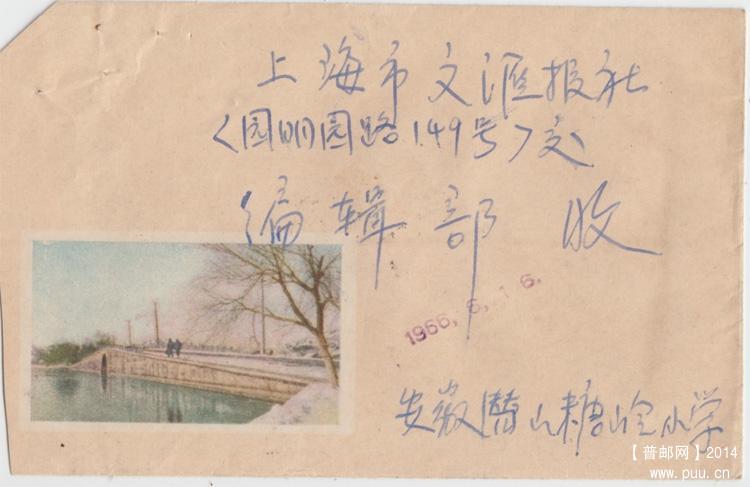 上海市文汇报社
〈园明园路149号〉交
编辑部 收
1966. 6. 16.
安徽潜山糖岭小学
【普邮网】2014
www.puu.cn